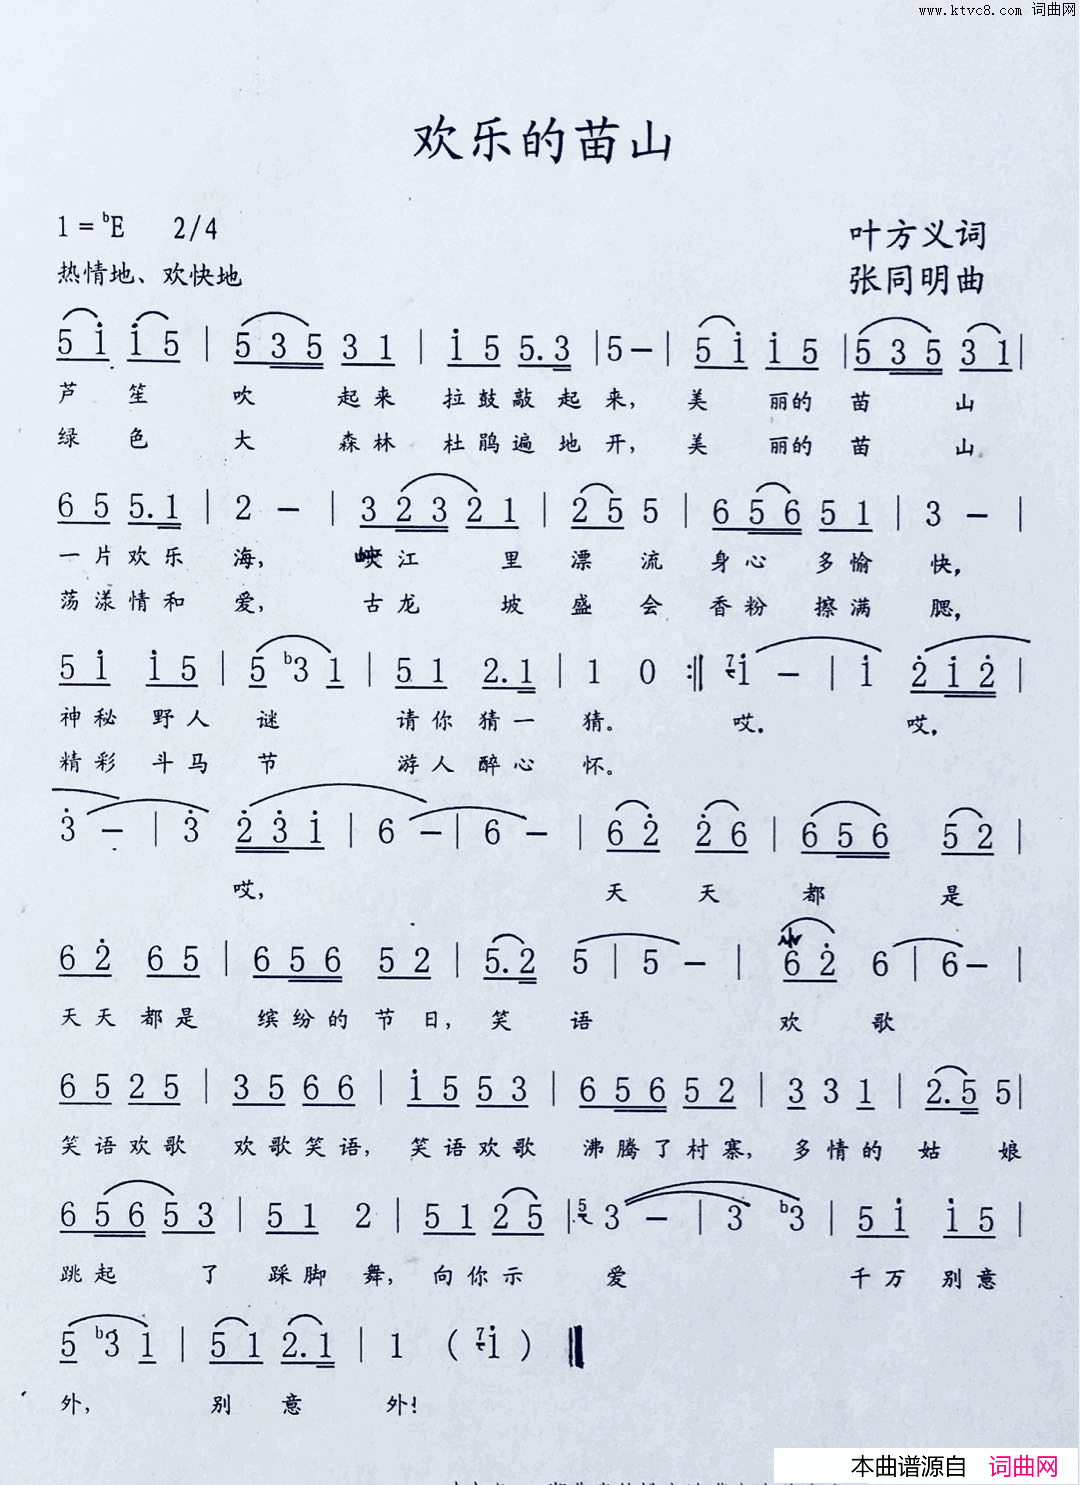 www.ktvc8.com 词曲网
欢乐的苗山
1=ᵇE 2/4
叶方义词
热情地、欢快地
张同明曲
5 i̇ i̇ 5 | 5 3 5 3 1 | i̇ 5 5. 3 | 5 – | 5 i̇ i̇ 5 | 5 3 5 3 1 |
芦 笙 吹 起来 拉鼓敲起来, 美 丽的 苗 山
绿 色 大 森林 杜鹃遍地开, 美 丽的 苗 山
6 5 5. 1 | 2 – | 3 2 3 2 1 | 2 5 5 | 6 5 6 5 1 | 3 – |
一片欢乐 海, 峡江 里 漂 流 身心 多愉 快,
荡漾情和 爱, 古龙 坡 盛 会 香粉 擦满 腮,
5 i̇ i̇ 5 | 5 ᵇ3 1 | 5 1 2. 1 | 1 0 :‖ 7 i̇ – | i̇ 2̇ i̇ 2̇ |
神秘 野人 谜 请你猜一 猜。 哎. 哎,
精彩 斗马 节 游人醉心 怀。
3̇ – | 3̇ 2̇ 3̇ i̇ | 6 – | 6 – | 6 2̇ 2̇ 6 | 6 5 6 5 2 |
哎, 天 天 都 是
6 2̇ 6 5 | 6 5 6 5 2 | 5. 2 5 | 5 – | 6 2̇ 6 | 6 – |
天天都是 缤纷的节日, 笑 语 欢 歌
6 5 2 5 | 3 5 6 6 | i̇ 5 5 3 | 6 5 6 5 2 | 3 3 1 | 2. 5 5 |
笑语欢歌 欢歌笑语, 笑语欢歌 沸腾了村寨, 多情的 姑 娘
6 5 6 5 3 | 5 1 2 | 5 1 2 5 | 5 3 – | 3 ᵇ3 | 5 i̇ i̇ 5 |
跳起 了 踩脚 舞, 向你示 爱 千万 别意
5 ᵇ3 1 | 5 1 2. 1 | 1 ( 7 i̇ ) ‖
外, 别 意 外!
本曲谱源自 词曲网